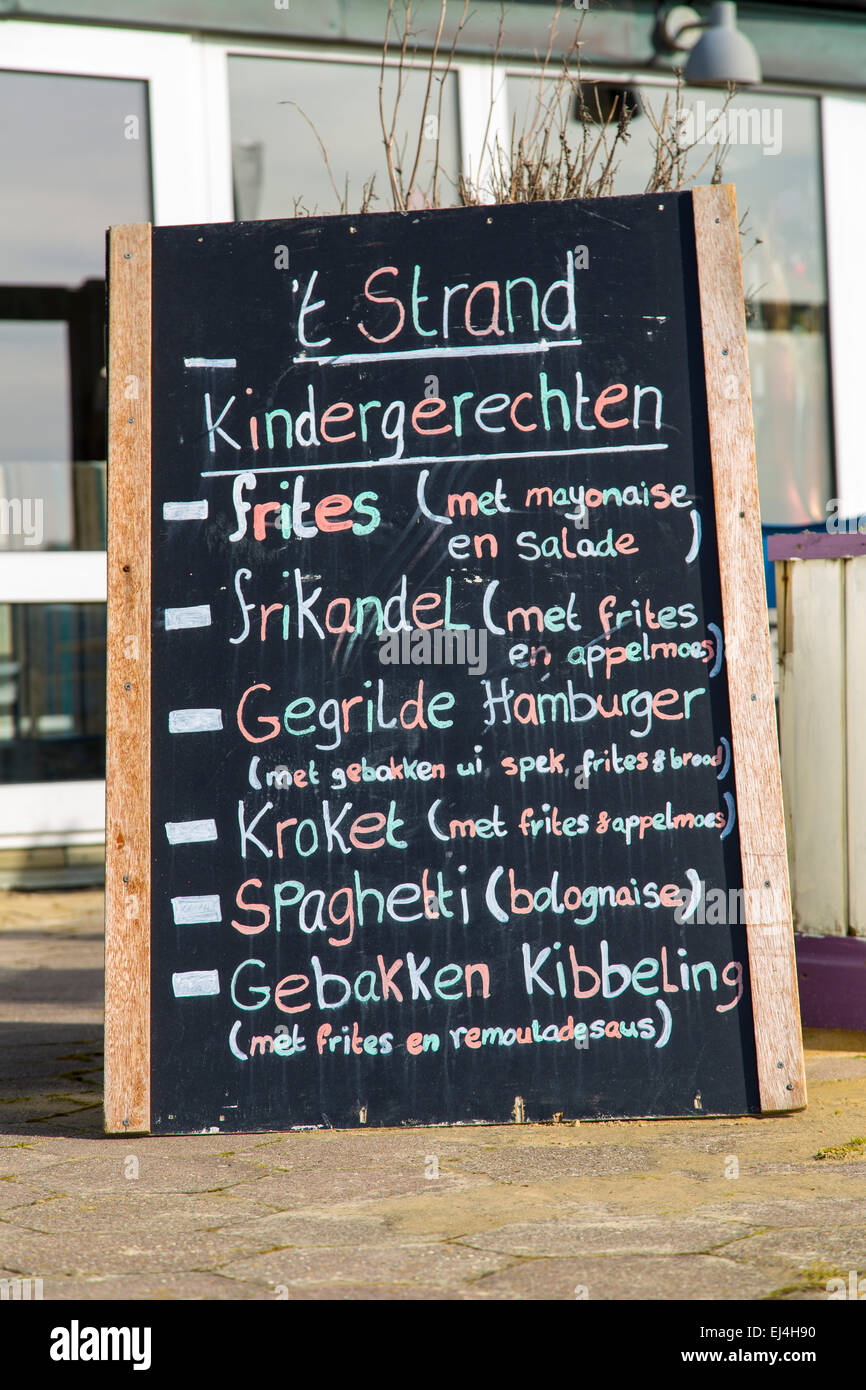 't Strand
Kindergerechten
frites (met mayonaise
en salade)
frikandel (met frites
en appelmoes)
Gegrilde Hamburger
(met gebakken ui spek, frites & brood)
Kroket (met frites & appelmoes)
Spaghetti (bolognaise)
Gebakken Kibbeling
(met frites en remouladesaus)
alamy
Image ID: EJ4H90
www.alamy.com